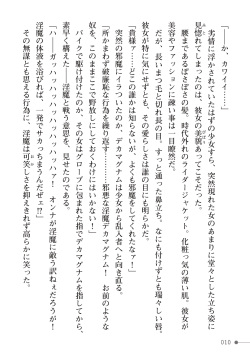 「――か、カワイイ……」
劣情に浮かされていたはずの少女すら、突然現れた女のあまりに堂々とした立ち姿に
見惚れてしまったのは、彼女の美貌あってこそだった。
腰まであるぼさぼさの髪、時代外れのライダージャケット。化粧っ気の薄い肌。彼女が
美容やファッションに疎い事は一目瞭然だ。
だが、長いまつ毛と切れ長の目。すっと通った鼻立ち。なにも付けずとも瑞々しい唇。
彼女が特に気にせずとも、その愛らしさは誰の目にも明らかだ。
「貴様ァ……どこの誰かは知らないが、よくも邪魔をしてくれたなァ！」
突然の邪魔にイラついたのか、デカマグナムは少女から乱入者へと向き直る。
「所かまわず破廉恥な行為を繰り返す……若き淫魔デカマグナム！　お前のような
奴を、このままここで野放しにしておくわけにはいかない！」
バイクで駆け付けたのか、その女はグローブに包まれた指でデカマグナムを指さし、
素早く構えた――淫魔と戦う意思を、見せたのである。
「ハ――ガッハッハッハッハッハッハァ！　オンナが淫魔に敵う訳ねぇだろうが！
淫魔の体液を浴びれば、一発でサカっちまうんだぜェ!?」
その無謀とも思える行為に、淫魔は可笑しさを抑えきれず高らかに笑った。
010